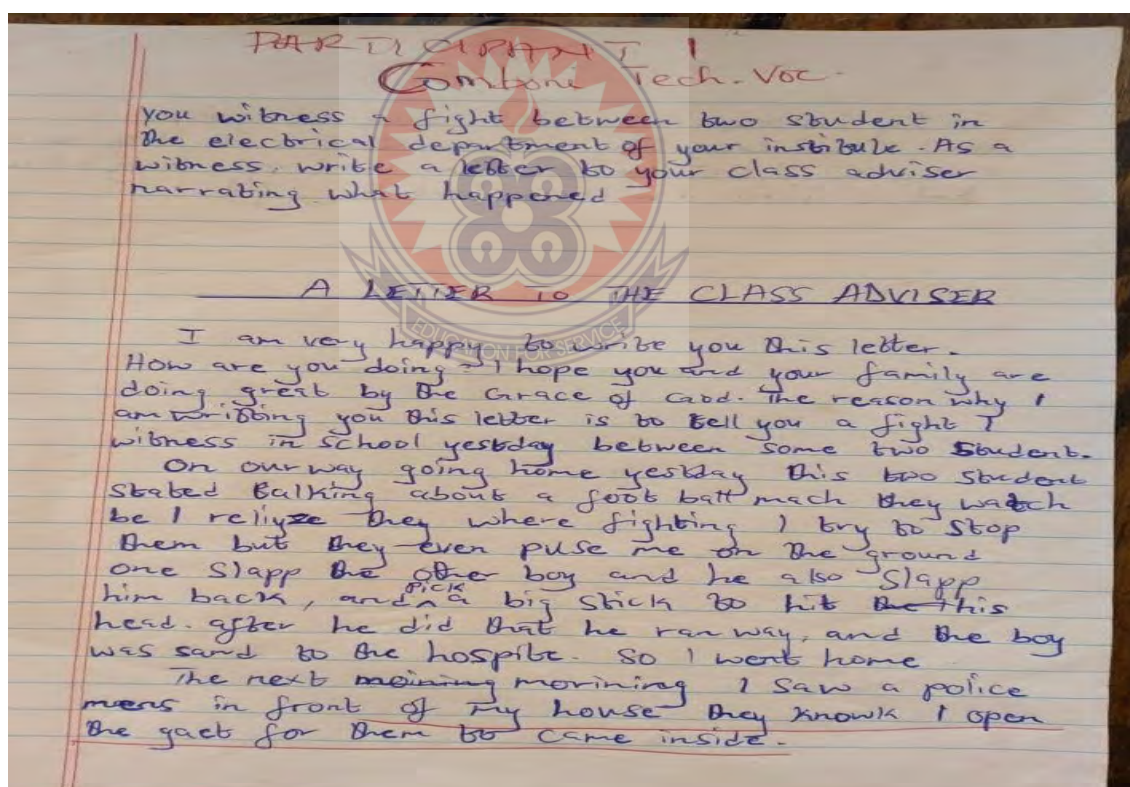 PARTICIPANT 1
Comboni Tech. Voc.
you witness a fight between two student in
the electrical department of your institute. As a
witness, write a letter to your class adviser
narrating what happened
A LETTER TO THE CLASS ADVISER
EDUCATION FOR SERVICE
I am very happy to write you this letter.
How are you doing - I hope you and your family are
doing great by the Grace of God. The reason why I
am writting you this letter is to tell you a fight I
witness in school yestday between some two student.
On our way going home yestday this two student
stated talking about a foot ball mach they watch
be I reliyze they where fighting I try to stop
them but they even puse me on the ground
one slapp the other boy and he also slapp
him back, and pick a big stick to hit the his
head. after he did that he ran way, and the boy
was sand to the hospite. So I went home
The next moining morining I saw a police
mens in front of my house they knowk I open
the gaet for them to came inside.